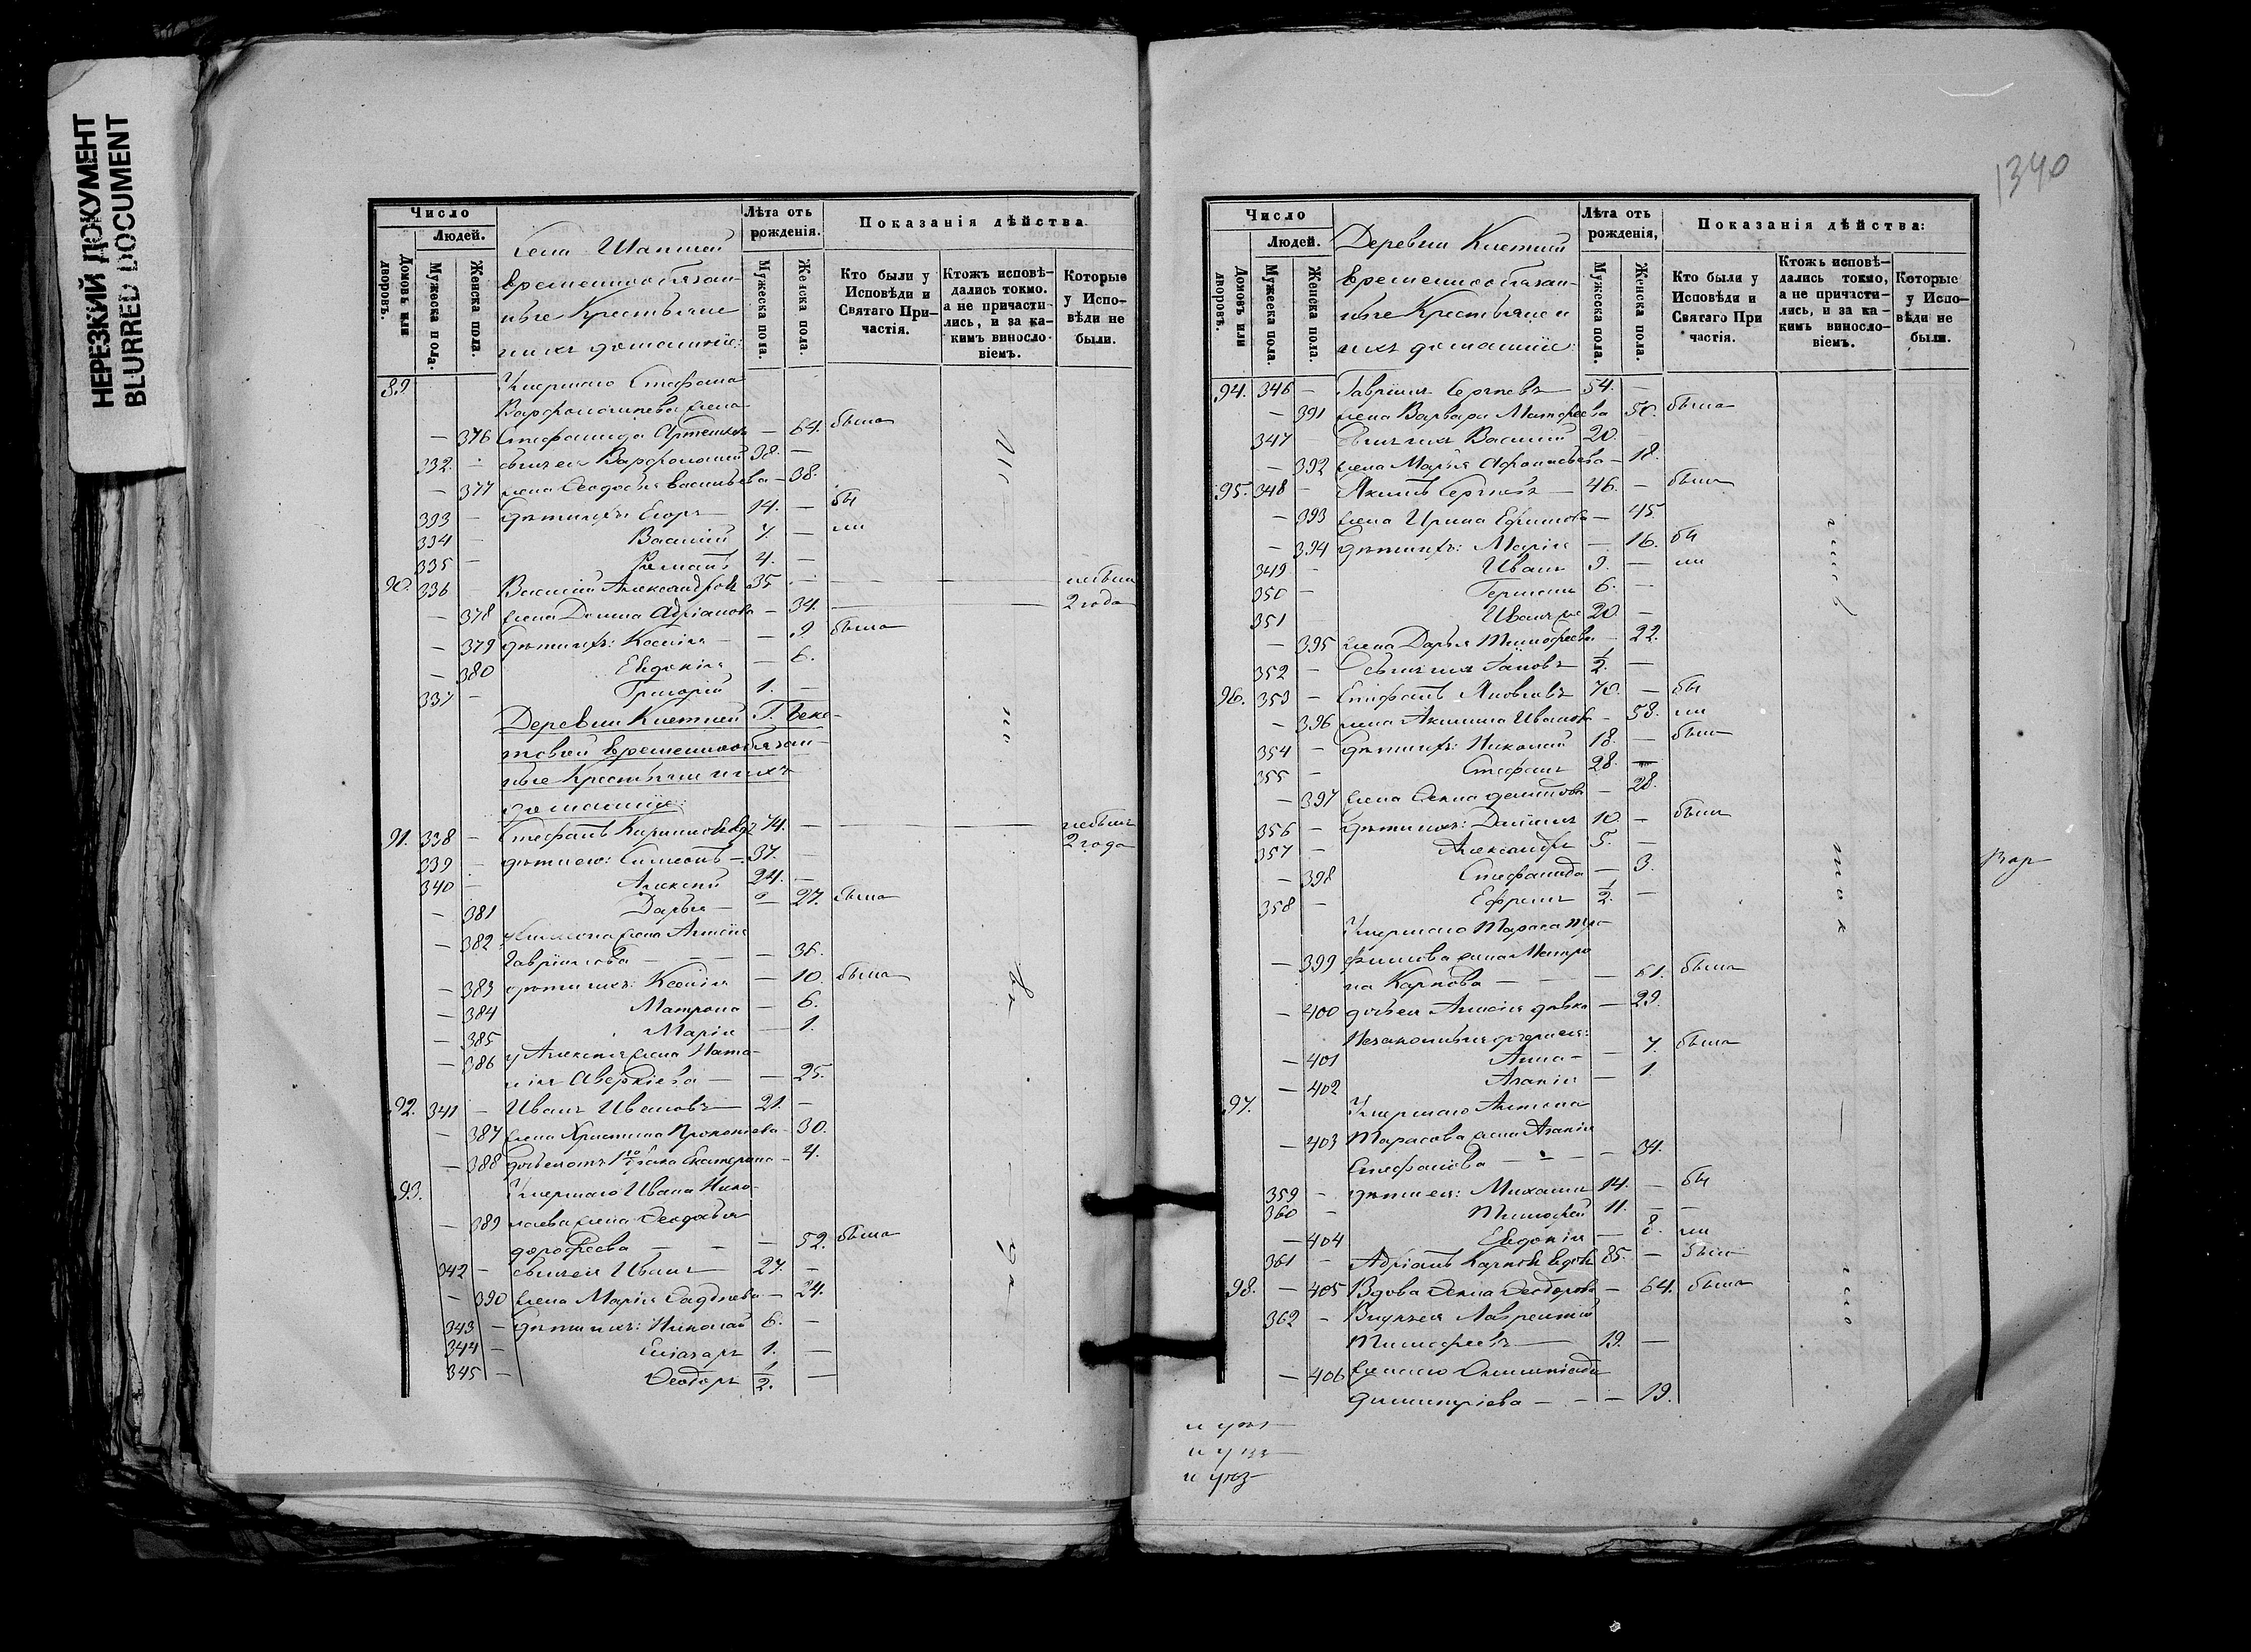 НЕРЕЗКИЙ ДОКУМЕНТ
BLURRED DOCUMENT
Число
Людей.
Домовъ или дворовъ.
Мужеска пола.
Женска пола.
Села
временнообязан-
ные Крестьяне
и ихъ домашніе:
Лѣта отъ рожденія.
Мужеска пола.
Женска пола.
Показанія дѣйства.
Кто были у Исповѣди и Святаго При-частія.
Ктожъ исповѣ-дались токмо. а не причасти-лись, и за ка-кимъ винословіемъ.
Которые у Испо-вѣди не были.
89. Умершаго Стефана
Варфоломеева жена
— 376 Стефанида — 64. была
332. — сынъ ея Варфоломей 38. —
— 377 жена Ѳеодосья Васильева — 38.
333 — дѣти ихъ: Егоръ 14. — бы
334 — Василий 7. — ли
335 — Романъ 4. —
90. 336 Василий Александровъ 35 — — — небыли
— 378 жена Домна Адріанова — 34. — — 2 года
— 379 дѣти ихъ: Ксенія — 9 была
— 380 Евдокія — 6.
337 — Григорій 1. —
Деревни
временнообязан-
ные Крестьяне и ихъ
домашніе:
91. 338 — Стефанъ 74. — — — небылъ
339 — дѣти его: Симеонъ — 37. — 2 года
340 — Алексѣй 24. —
— 381 Дарья — 27. была
— 382 Симеона жена
Гавріилова — — — 36.
— 383 дѣти ихъ: Ксенія — 10. была
— 384 Матрона — 6.
— 385 Марія — 1.
— 386 у Алексѣя жена Ната-
лія Аверкіева — — 25.
92. 341 — Иванъ Ивановъ 21. —
— 387 жена Христина Прокопіева — 30.
— 388 дочь 1го брака Екатерина — 4.
93. Умершаго Ивана Нико-
— 389 лаева жена Ѳеодосья
Дороѳеева — — — 52. была
342 — сынъ ея Иванъ 27. —
— 390 жена Марія — 24.
343 — дѣти ихъ: Николай 6. —
344 — Елеазаръ 1. —
345 — Ѳеодоръ 1/2. —
1340
Число
Людей.
Домовъ или дворовъ.
Мужеска пола.
Женска пола.
Деревни
временнообязан-
ные Крестьяне и
ихъ домашніе:
Лѣта отъ рожденія,
Мужеска пола.
Женска пола.
Показанія дѣйства:
Кто были у Исповѣди и Святаго При частія.
Ктожъ исповѣ-дались токмо, а не причасти-лись, и за ка-кимъ винослo-віемъ.
Которые у Испо-вѣди не были.
94. 346 — Гавріилъ Сергѣевъ 54. —
— 391 жена Варвара Матѳеева 50. была
347 сынъ ихъ Василий 20. —
— 392 жена Марья Аѳанасьева — 18.
95. 348 — Сергѣевъ — 46. — былъ
— 393 жена Ирина Ефимова — 45
— 394 дѣти ихъ: Марія — 16. бы
349 — Иванъ 9. — ли
350 — Германъ 6. —
351 Иванъ 20 —
— 395 жена Дарья Тимоѳеева — 22.
352 — сынъ ихъ 1/2. —
96. 353 — Стефанъ Яковлевъ 70. — бы
— 396 жена Акилина Иванова — 58. ли
354 — дѣти ихъ: Николай 18. — былъ
355 — Стефанъ 28. —
— 397 жена — 28.
356 — дѣти ихъ: Даніилъ 10 — былъ
357 — Александръ 5. —
— 398 Стефанида — 3.
358 — Ефремъ 1/2. —
Умершаго Тараса Тро-
— 399 фимова жена Матро
на Карпова — — — 61. была
— 400 дочь ея дѣвка — 29.
Незаконныя дочери ея:
— 401 Анна — — 7. была
— 402 Агапія — 1.
97. Умершаго Антона
— 403 Тарасова жена Агапія
Стефанова — — — 34.
359 — дѣти ея: Михаилъ 14. — бы
360 — Тимоѳей 11. —
— 404 Евдокія — 8. ли
361 — Адріанъ Карповъ вдовъ 85. — былъ
98. — 405 Вдова Ѳекла Ѳеодорова — 64. была
362 — Внукъ ея Лаврентій
Тимоѳеевъ — 19. —
— 406 жена его Олимпіада
Димитріева — — — 19.